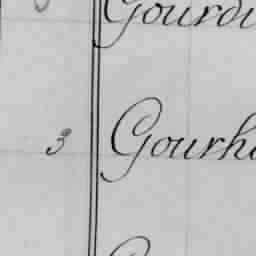 Gourdi
3 Gourh